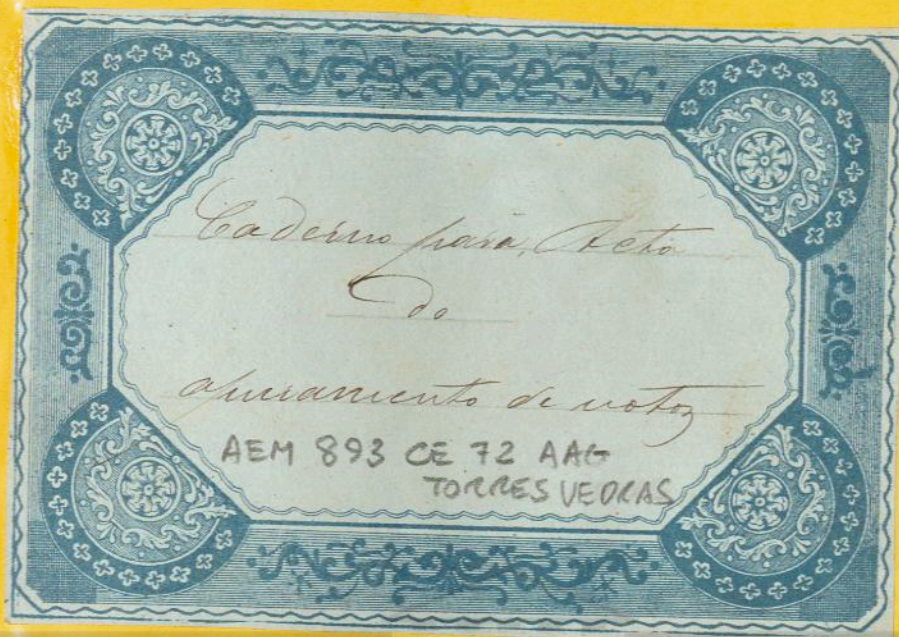 Caderno para, Acta
do
apuramento de votos
AEM 893 CE 72 AAG
TORRES VEDRAS